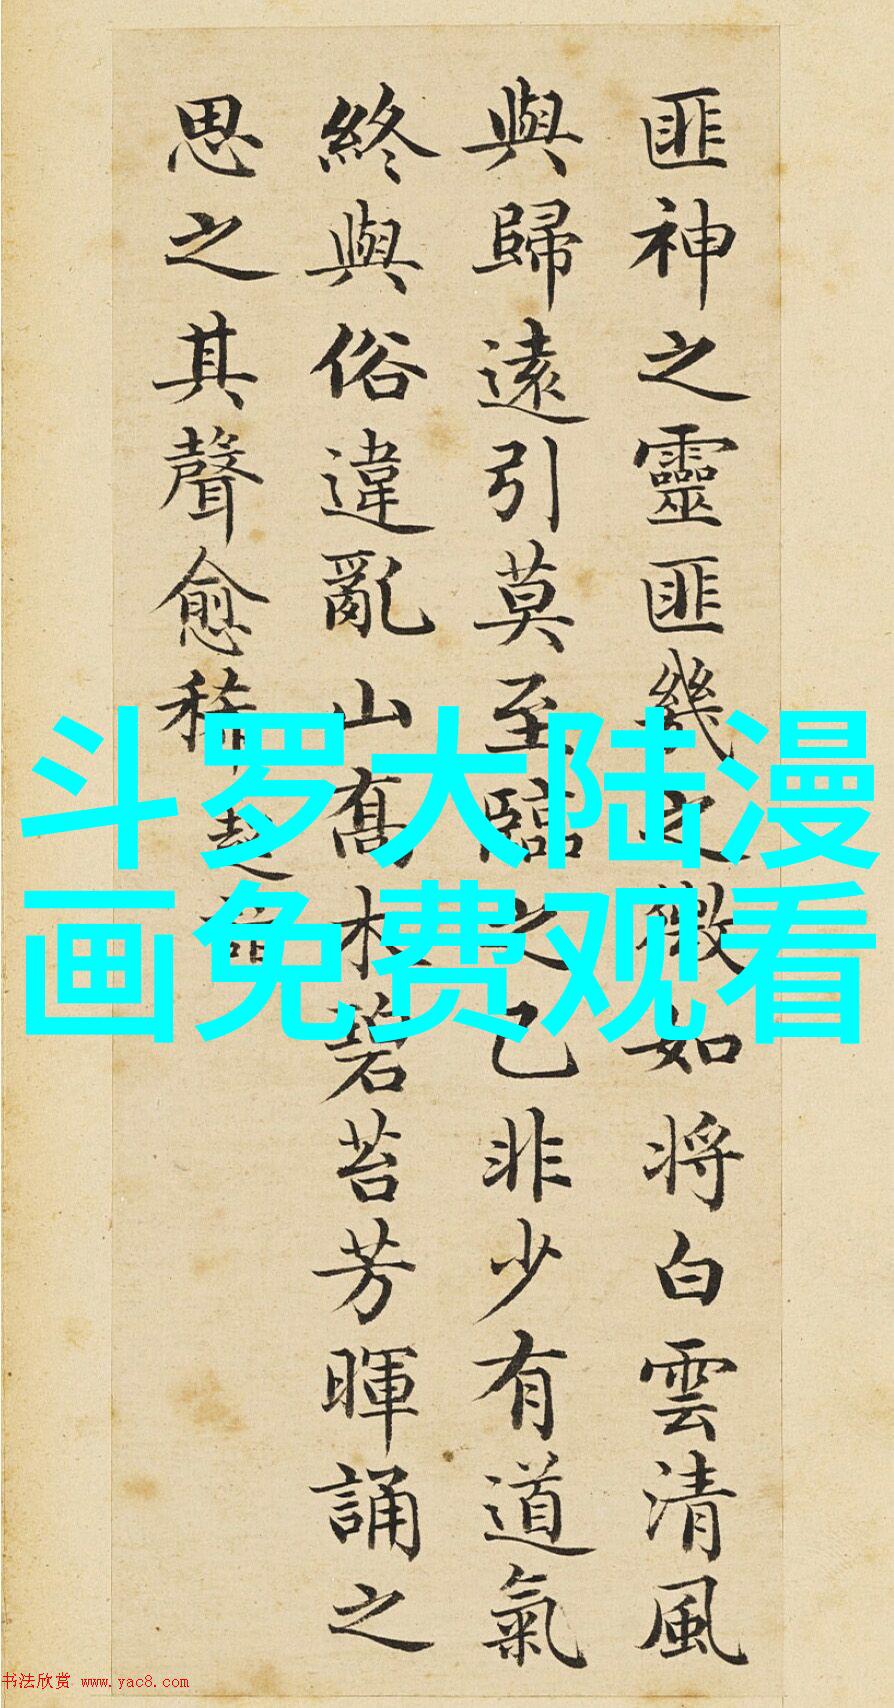 匪神之靈匪匪幾之微如将白雲清風
與歸遠引莫至臨之已非少有道氣
終與俗違亂山喬木碧苔芳暉誦之
思之其聲愈稀
斗罗大陆漫
画免费观看
书法欣赏 www.yac8.com